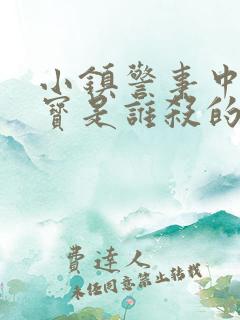 小鎮警事中
寶是誰殺的
費達人
未经同意禁止转载